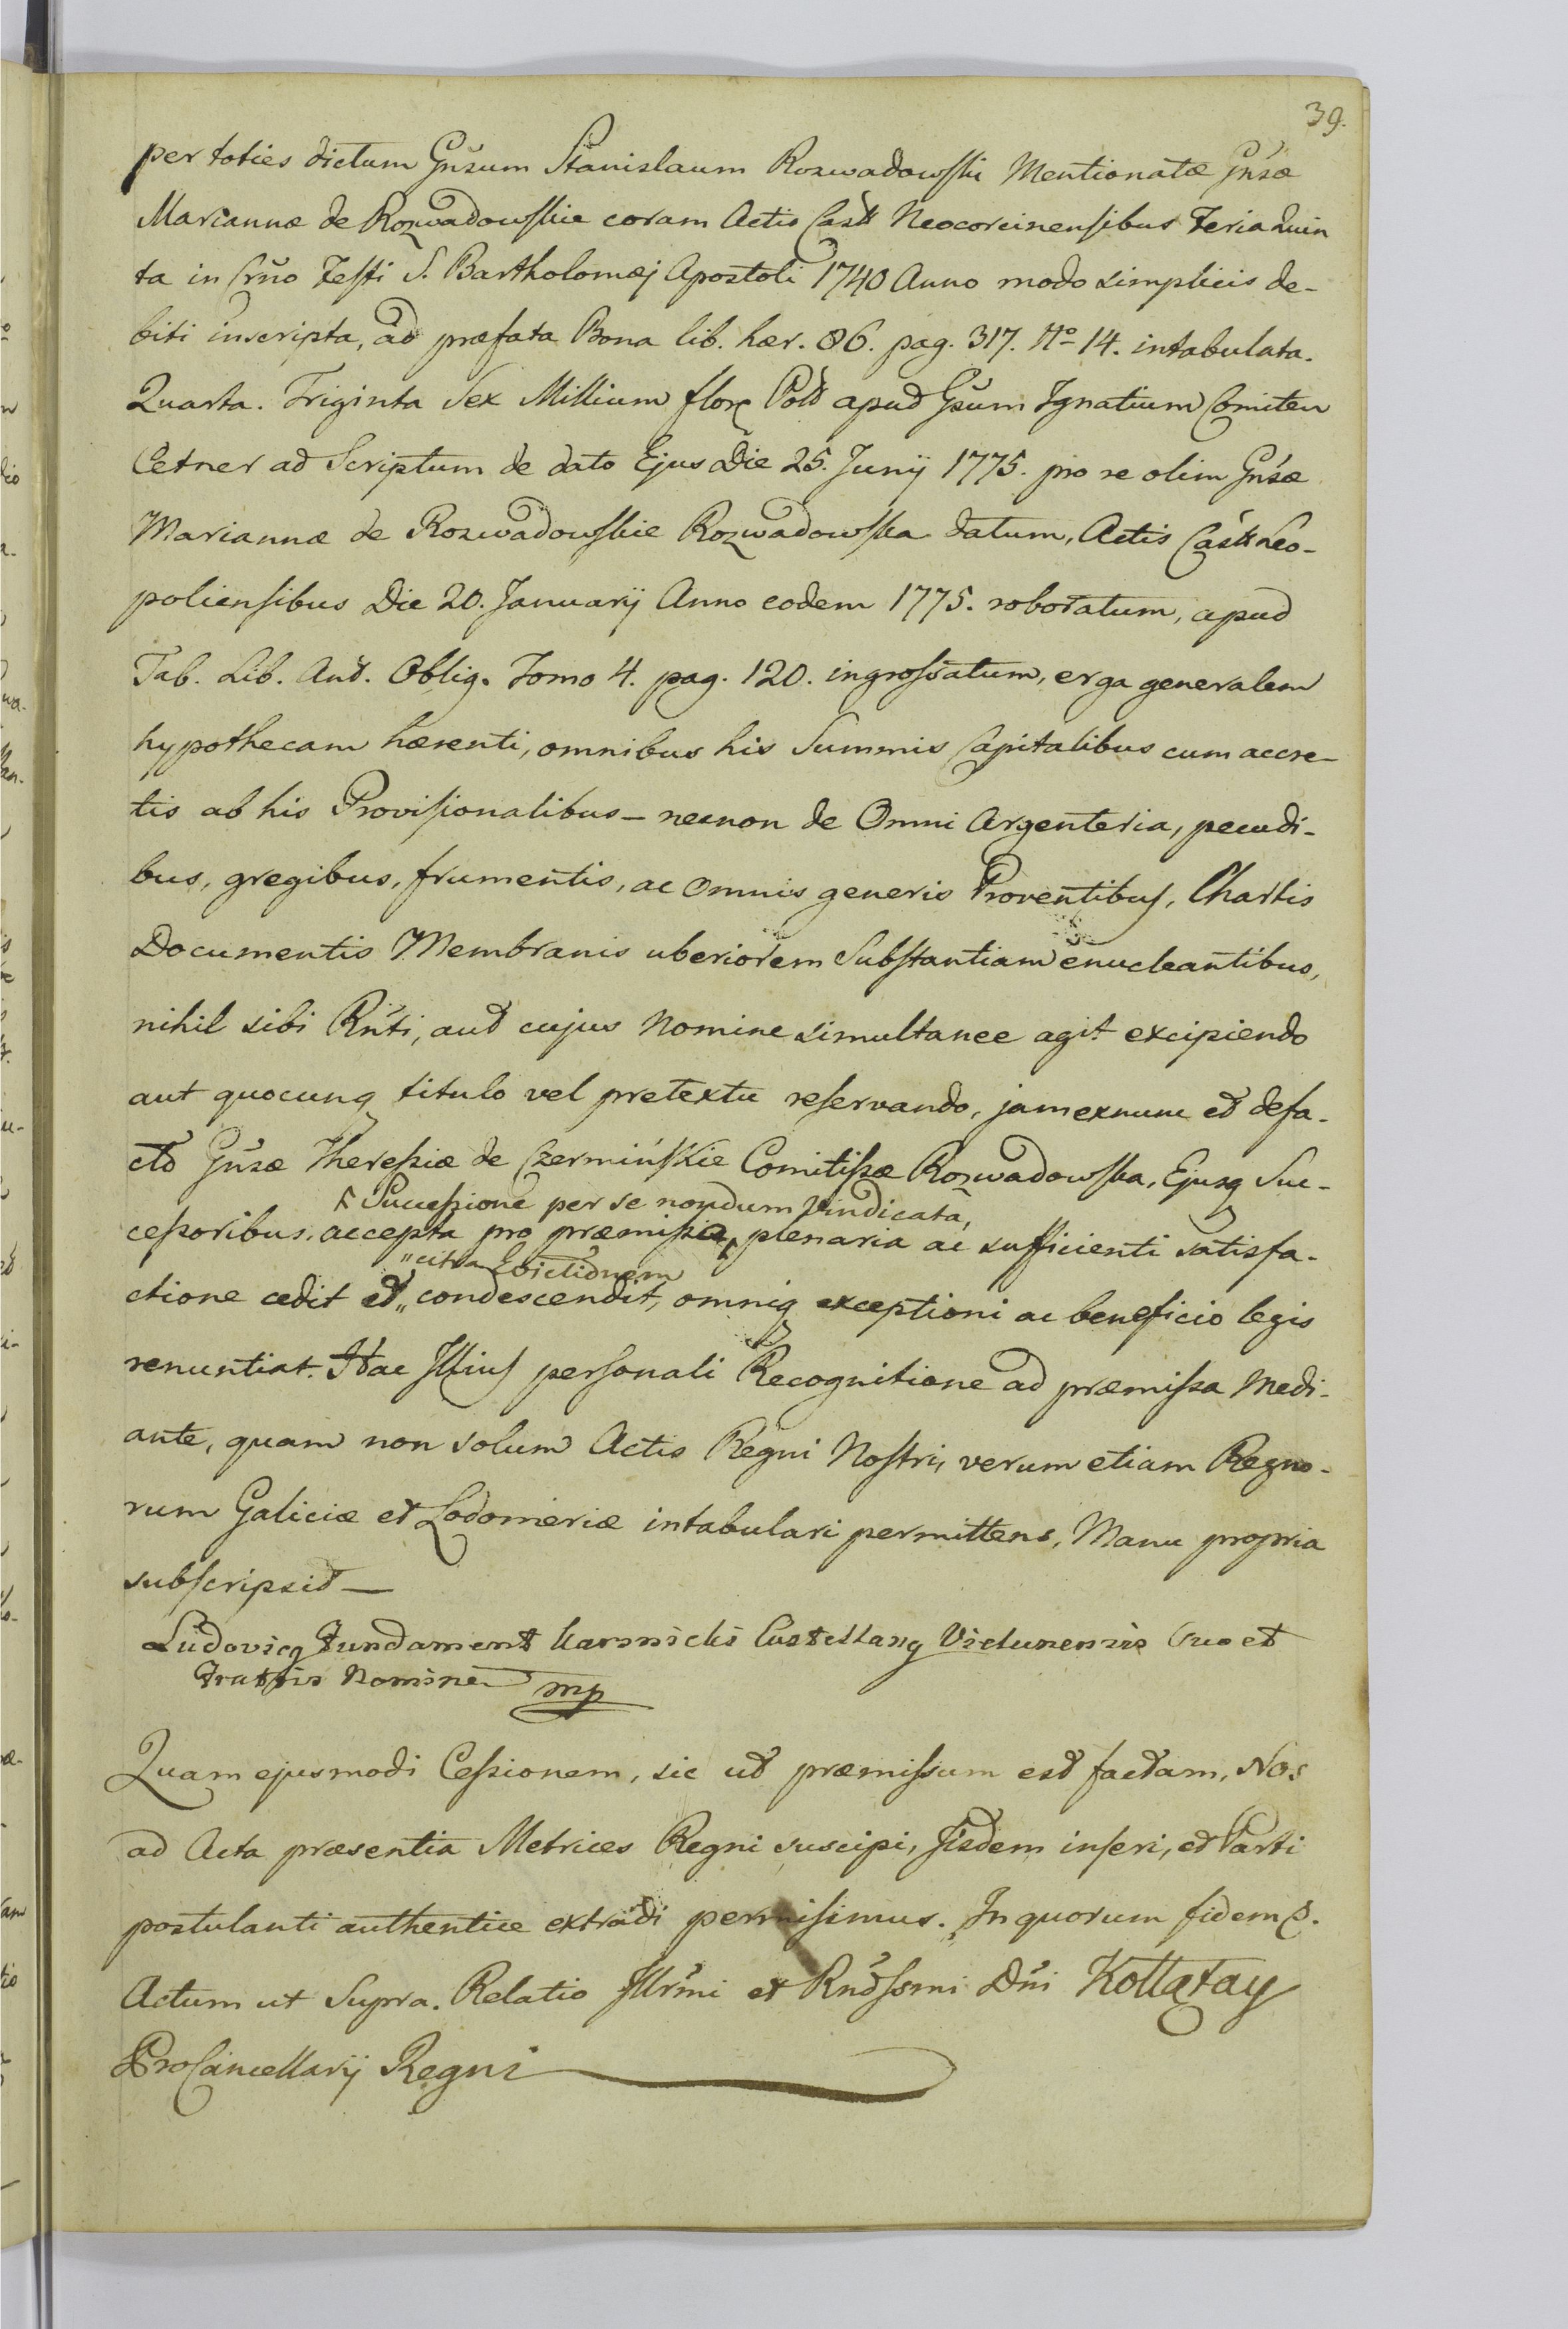 39.
per toties dictum Gnsum Stanislaum Rozwadowski Mentionatæ Gnsæ
Mariannæ de Rozwadowskie coram Actis Castr Neocorcinensibus Feria Quin
ta in Crno Festi S. Bartholomæj Apostoli 1740 Anno modo simplicis de-
biti inscripta, ad præfata Bona lib. hær. 86. pag. 317. No 14. intabulata.
Quarta. Triginta Sex Millium flor Pold apud Gsum Ignatium Comitem
Cetner ad Scriptum de dato Ejus Die 25. Junij 1775. pro re olim Gnsæ
Mariannæ de Rozwadowskie Rozwadowska datum, Actis Castr Leo-
poliensibus Die 20. Januarij Anno eodem 1775. roboratum, apud
Tab. Lib. Ant. Oblig. Tomo 4. pag. 120. ingrossatum, erga generalem
hypothecam hærenti, omnibus his Summis Capitalibus cum accre-
tis ab his Provisionalibus — necnon de Omni Argenteria, pecudi-
bus, gregibus, frumentis, ac omnis generis Proventibus, Chartis
Documentis Membranis uberiorem Substantiam enucleantibus,
nihil sibi Rnti, aut cujus Nomine simultanee agit excipiendo
aut quocunq titulo vel pretextu reservando, jam exnunc et defa-
cto Gnsæ Theressiæ de Czermińskie Comitissæ Rozwadowska, Ejusq Suc-
Successione per se nondum vindicata,
cessoribus, accepta pro præmissis plenaria ac sufficienti satisfa-
"citra Evictionem
ctione cedit et " condescendit, omniq exceptioni ac beneficio legis
renuntiat. Hac Illius personali Recognitione ad præmissa Medi-
ante, quam non solum Actis Regni Nostri, verum etiam Regno-
rum Galiciæ et Lodomeriæ intabulari permittens, Manu propria
subscripsit —
Ludovicq Fundament Karsnicki Castellanq Vielunensis Suo et
Fratris Nomine mp
Quam ejusmodi Cessionem, sic ut præmissum est factam, Nos
ad Acta præsentia Metrices Regni suscipi, Iisdem inseri, et Parti
postulanti authentice extradi permisimus. In quorum fidem &.
Actum ut Supra. Relatio Illrmi et Rndssmi Dni Kołłątay
ProCancellarij Regni